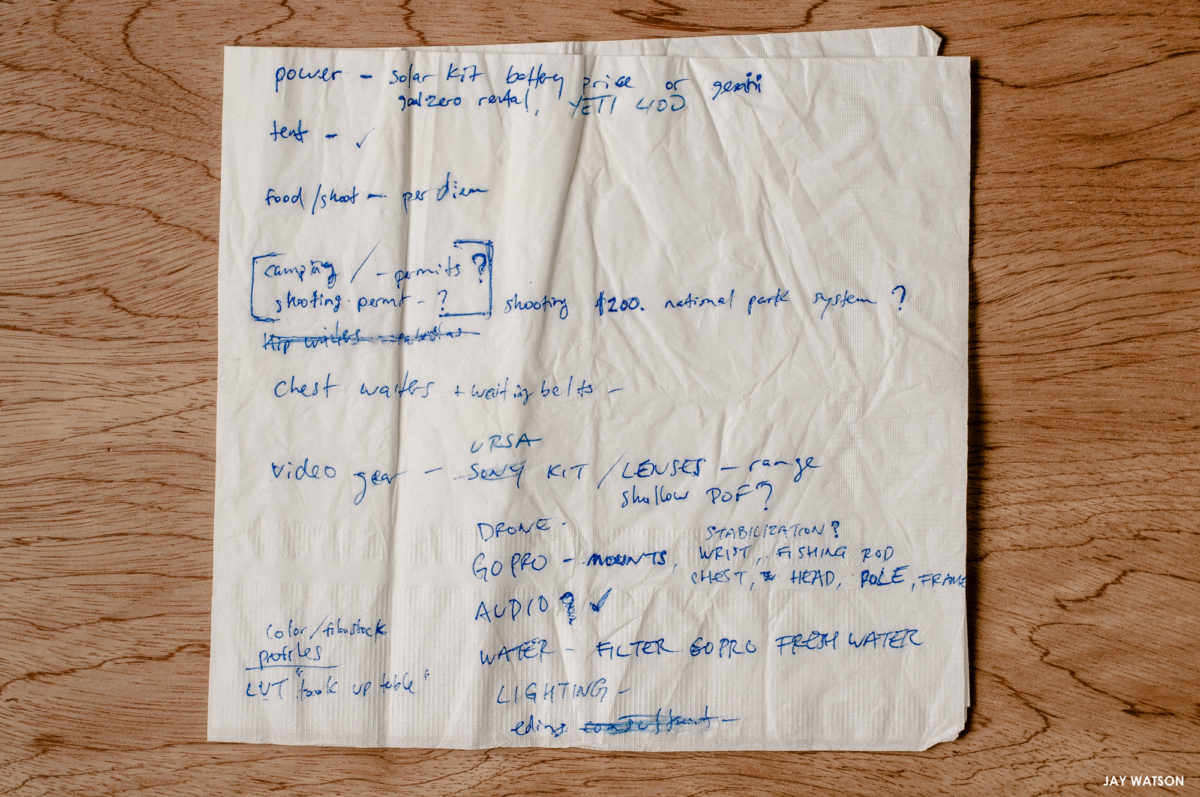 power - solar kit battery price or gemini
goal zero rental, YETI 400
tent - ✓
food/shoot - per diem
camping / - permits ?
shooting permit - ? shooting $200. national park system ?
Hip waiters
chest waiters + waiting belts -
URSA
video gear - SONY KIT / LENSES - range
shallow DOF?
DRONE -
STABILIZATION?
GO PRO - MOUNTS, WRIST, FISHING ROD
CHEST, HEAD, POLE, FRAME
AUDIO ? ✓
color/filmstock
profiles
WATER - FILTER GOPRO FRESH WATER
LUT "look up table"
LIGHTING -
JAY WATSON